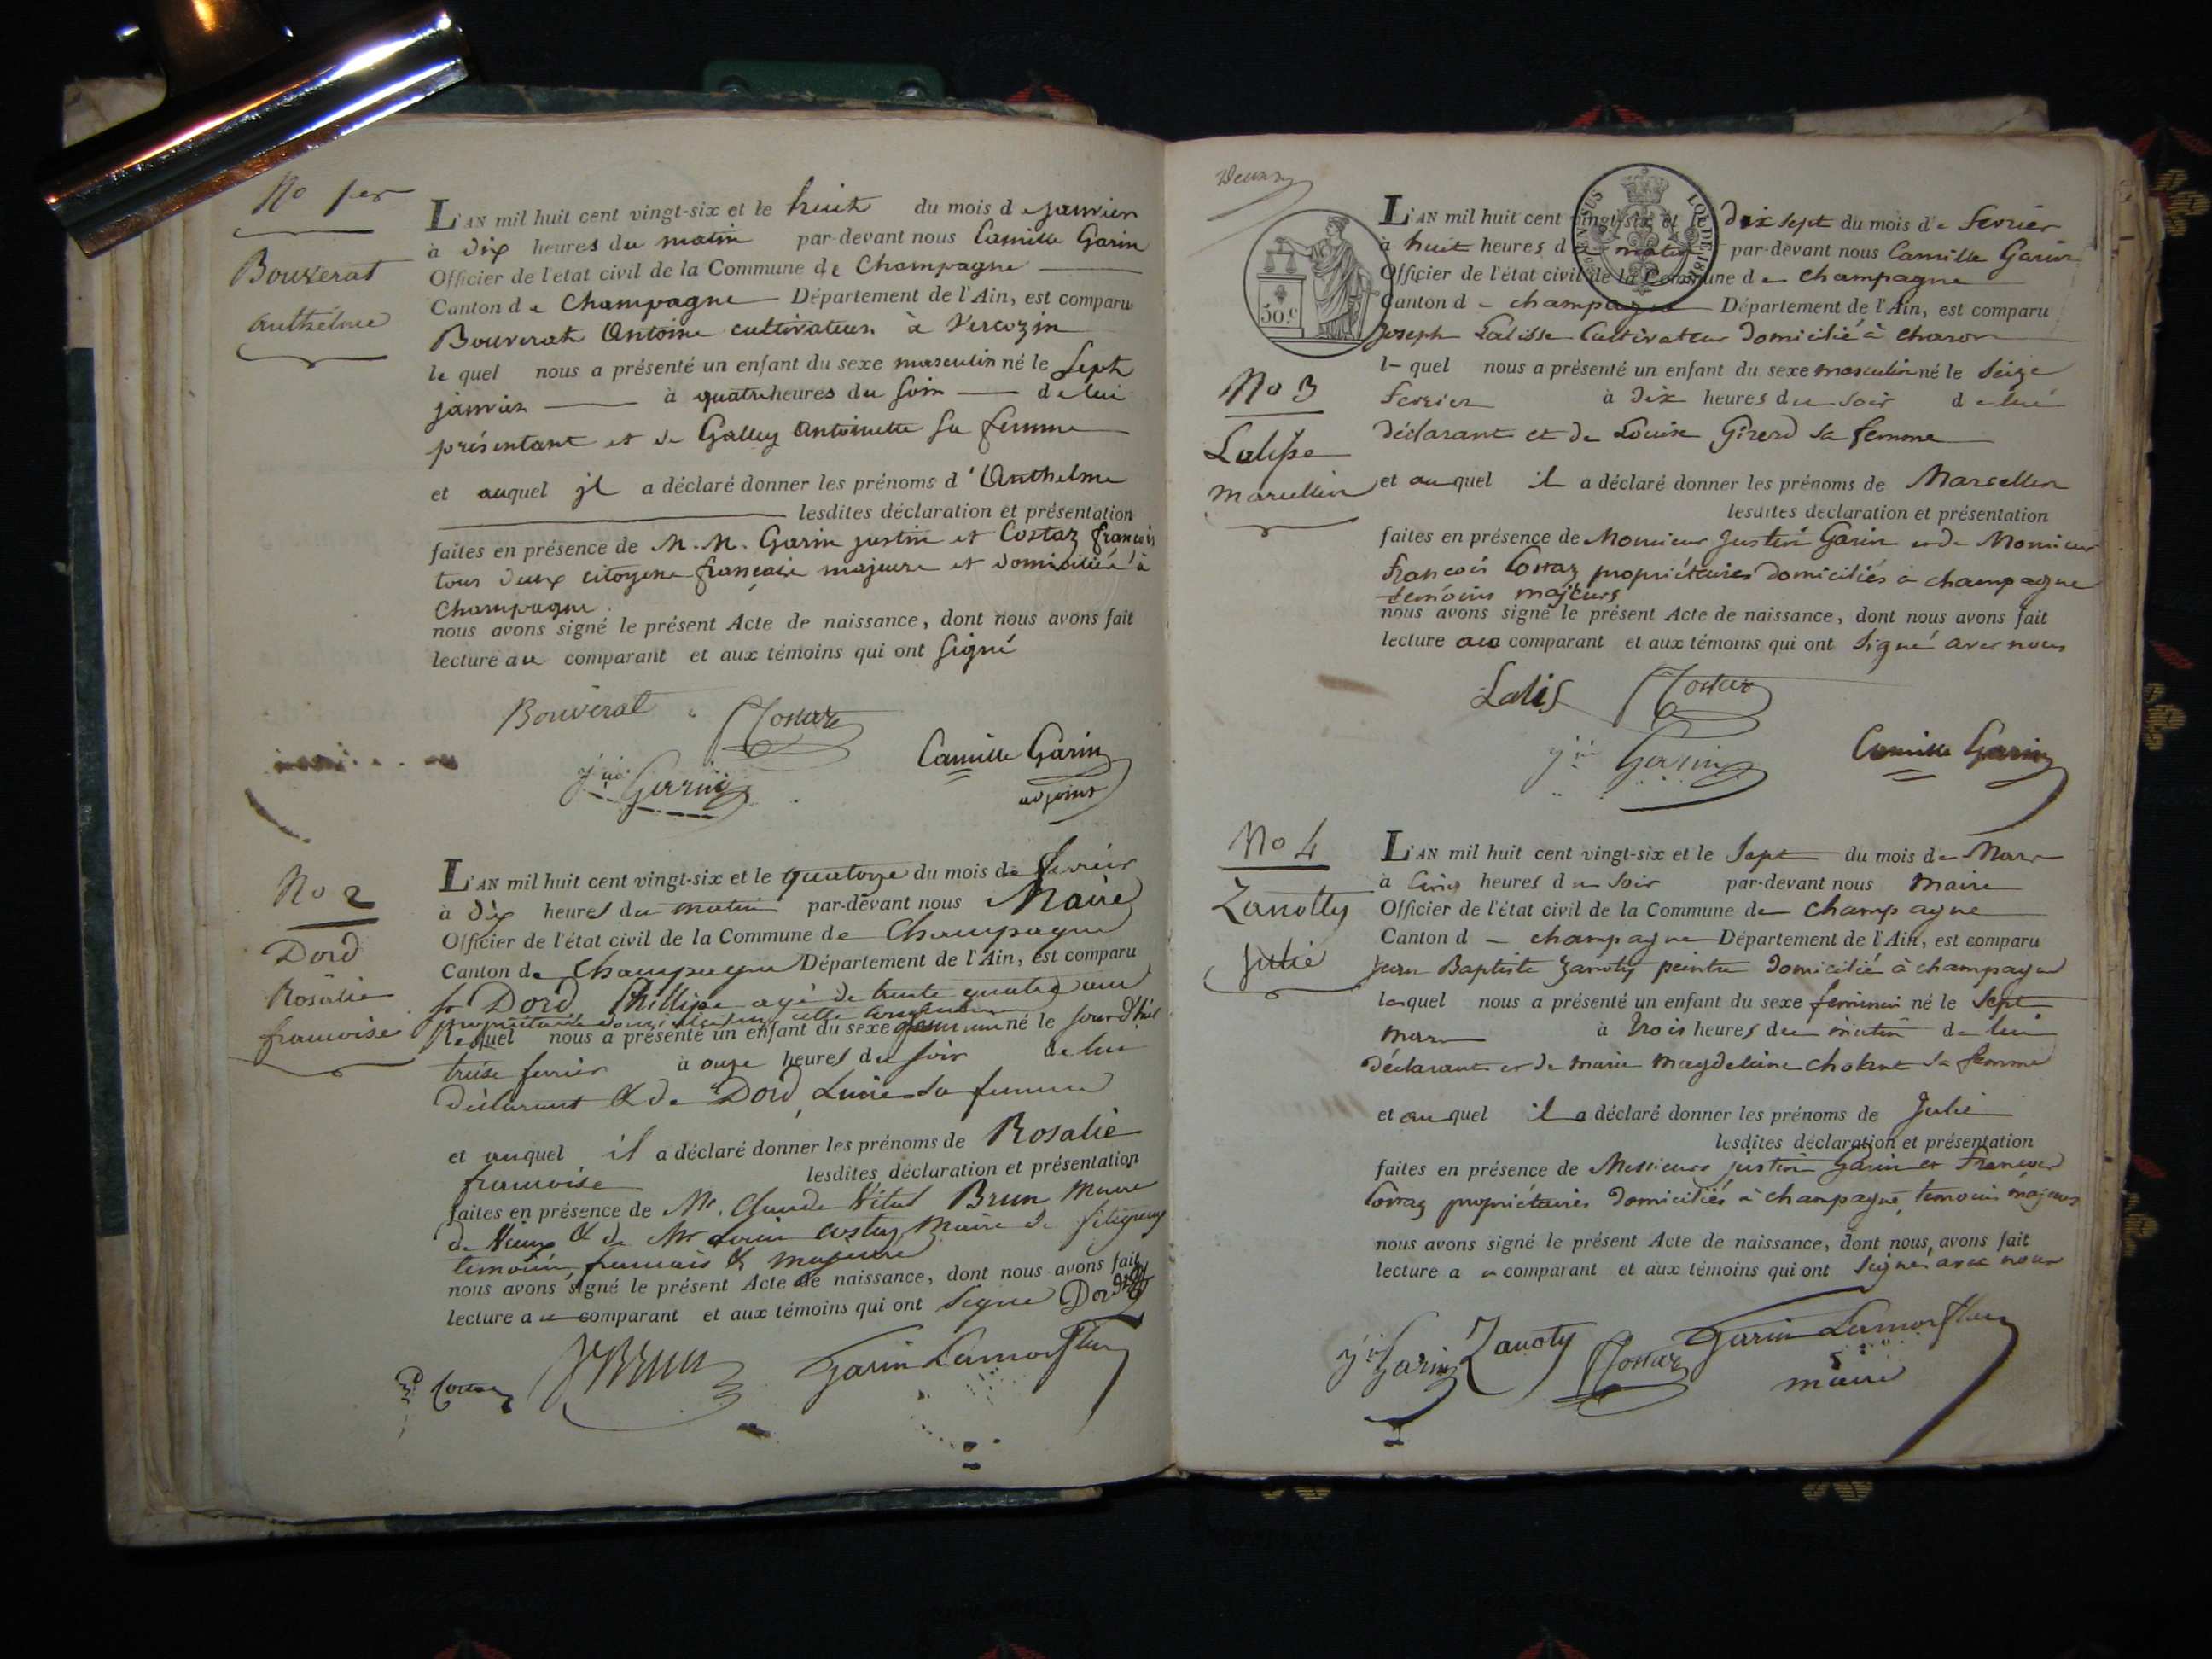 No 1er
Bouverat
anthelme
L'AN mil huit cent vingt-six et le huit du mois de janvier
à dix heures du matin par-devant nous Camille Garin
Officier de l'état civil de la Commune de Champagne
Canton de Champagne Département de l'Ain, est comparu
Bouverat Antoine cultivateur à Vercozin
le quel nous a présenté un enfant du sexe masculin né le sept
janvier à quatre heures du soir de lui
présentant et de Galley Antoinette sa femme
et auquel il a déclaré donner les prénoms d'Anthelme
lesdites déclaration et présentation
faites en présence de M.M. Garin justin et Costaz françois
tous deux citoyens français majeurs et domiciliés à
Champagne.
nous avons signé le présent Acte de naissance, dont nous avons fait
lecture au comparant et aux témoins qui ont signé
Bouverat Costaz
jin Garin Camille Garin
adjoint
No 2
Dord
Rosalie
francoise
L'AN mil huit cent vingt-six et le quatorze du mois de fevrier
à dix heures du matin par-devant nous Maire
Officier de l'état civil de la Commune de Champagne
Canton de Champagne Département de l'Ain, est comparu
sr Dord Phillipe agé de trente quatre ans
propriétaire
lequel nous a présenté un enfant du sexe feminin né le
treize fevrier à onze heures du soir de lui
déclarant & de Dord Lucie sa femme
et auquel il a déclaré donner les prénoms de Rosalie
francoise lesdites déclaration et présentation
faites en présence de Mr. Claude Vital Brun Maire
de Vieux & de Mr Costaz Maire de
temoins francais & majeurs
nous avons signé le présent Acte de naissance, dont nous avons fait
lecture au comparant et aux témoins qui ont signé Dord
Costaz Brun Garin Lamorflan
No 3
Lalisse
Marcellin
50.c
L'AN mil huit cent vingt-six et le dix sept du mois de fevrier
à huit heures du matin par-devant nous Camille Garin
Officier de l'état civil de la Commune de champagne
Canton de champagne Département de l'Ain, est comparu
joseph Lalisse Cultivateur domicilié à charon
le quel nous a présenté un enfant du sexe masculin né le seize
fevrier à dix heures du soir de lui
déclarant et de Louise Girerd sa femme
et auquel il a déclaré donner les prénoms de Marcellin
lesdites déclaration et présentation
faites en présence de Monsieur justin Garin et de Monsieur
françois Costaz propriétaires domiciliés à champagne
temoins majeurs
nous avons signé le présent Acte de naissance, dont nous avons fait
lecture au comparant et aux témoins qui ont signé avec nous
Lalis Costaz
jin Garin Camille Garin
No 4
Zanotty
Julie
L'AN mil huit cent vingt-six et le sept du mois de Mars
à cinq heures du soir par-devant nous Maire
Officier de l'état civil de la Commune de champagne
Canton de champagne Département de l'Ain, est comparu
jean Baptiste Zanoty peintre domicilié à champagne
lequel nous a présenté un enfant du sexe feminin né le sept
mars à trois heures du matin de lui
déclarant et de marie magdelaine cholant sa femme
et auquel il a déclaré donner les prénoms de Julie
lesdites déclaration et présentation
faites en présence de Messieurs justin garin et francois
Costaz propriétaires domiciliés à champagne, temoins majeurs
nous avons signé le présent Acte de naissance, dont nous avons fait
lecture au comparant et aux témoins qui ont signé avec nous
jin Garin Zanoty Costaz Garin Lamorflan
maire